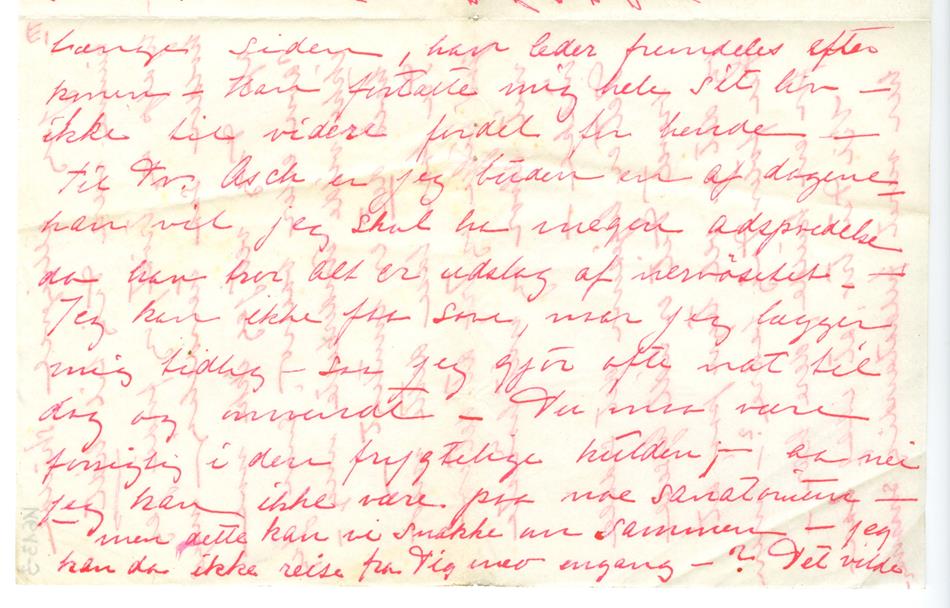 længe siden, han leder fremdeles efter
konen – Han fortalte mig hele sit liv –
ikke til videre fordel for hende –
Til Dr. Asch er jeg buden en af dagene –
han vil jeg skal ha megen adspredelse
da han tror alt er udslag af nervøsitet. –
Jeg kan ikke faa sove, naar jeg lægger
mig tidlig – saa jeg gjør ofte nat til
dag og omvendt – Du maa være
forsigtig i den frygtelige kulden; – aa nei
jeg kan ikke være paa noe sanatorium –
men dette kan vi snakke om sammen – jeg
kan da ikke reise fra Dig med engang –? Det vilde